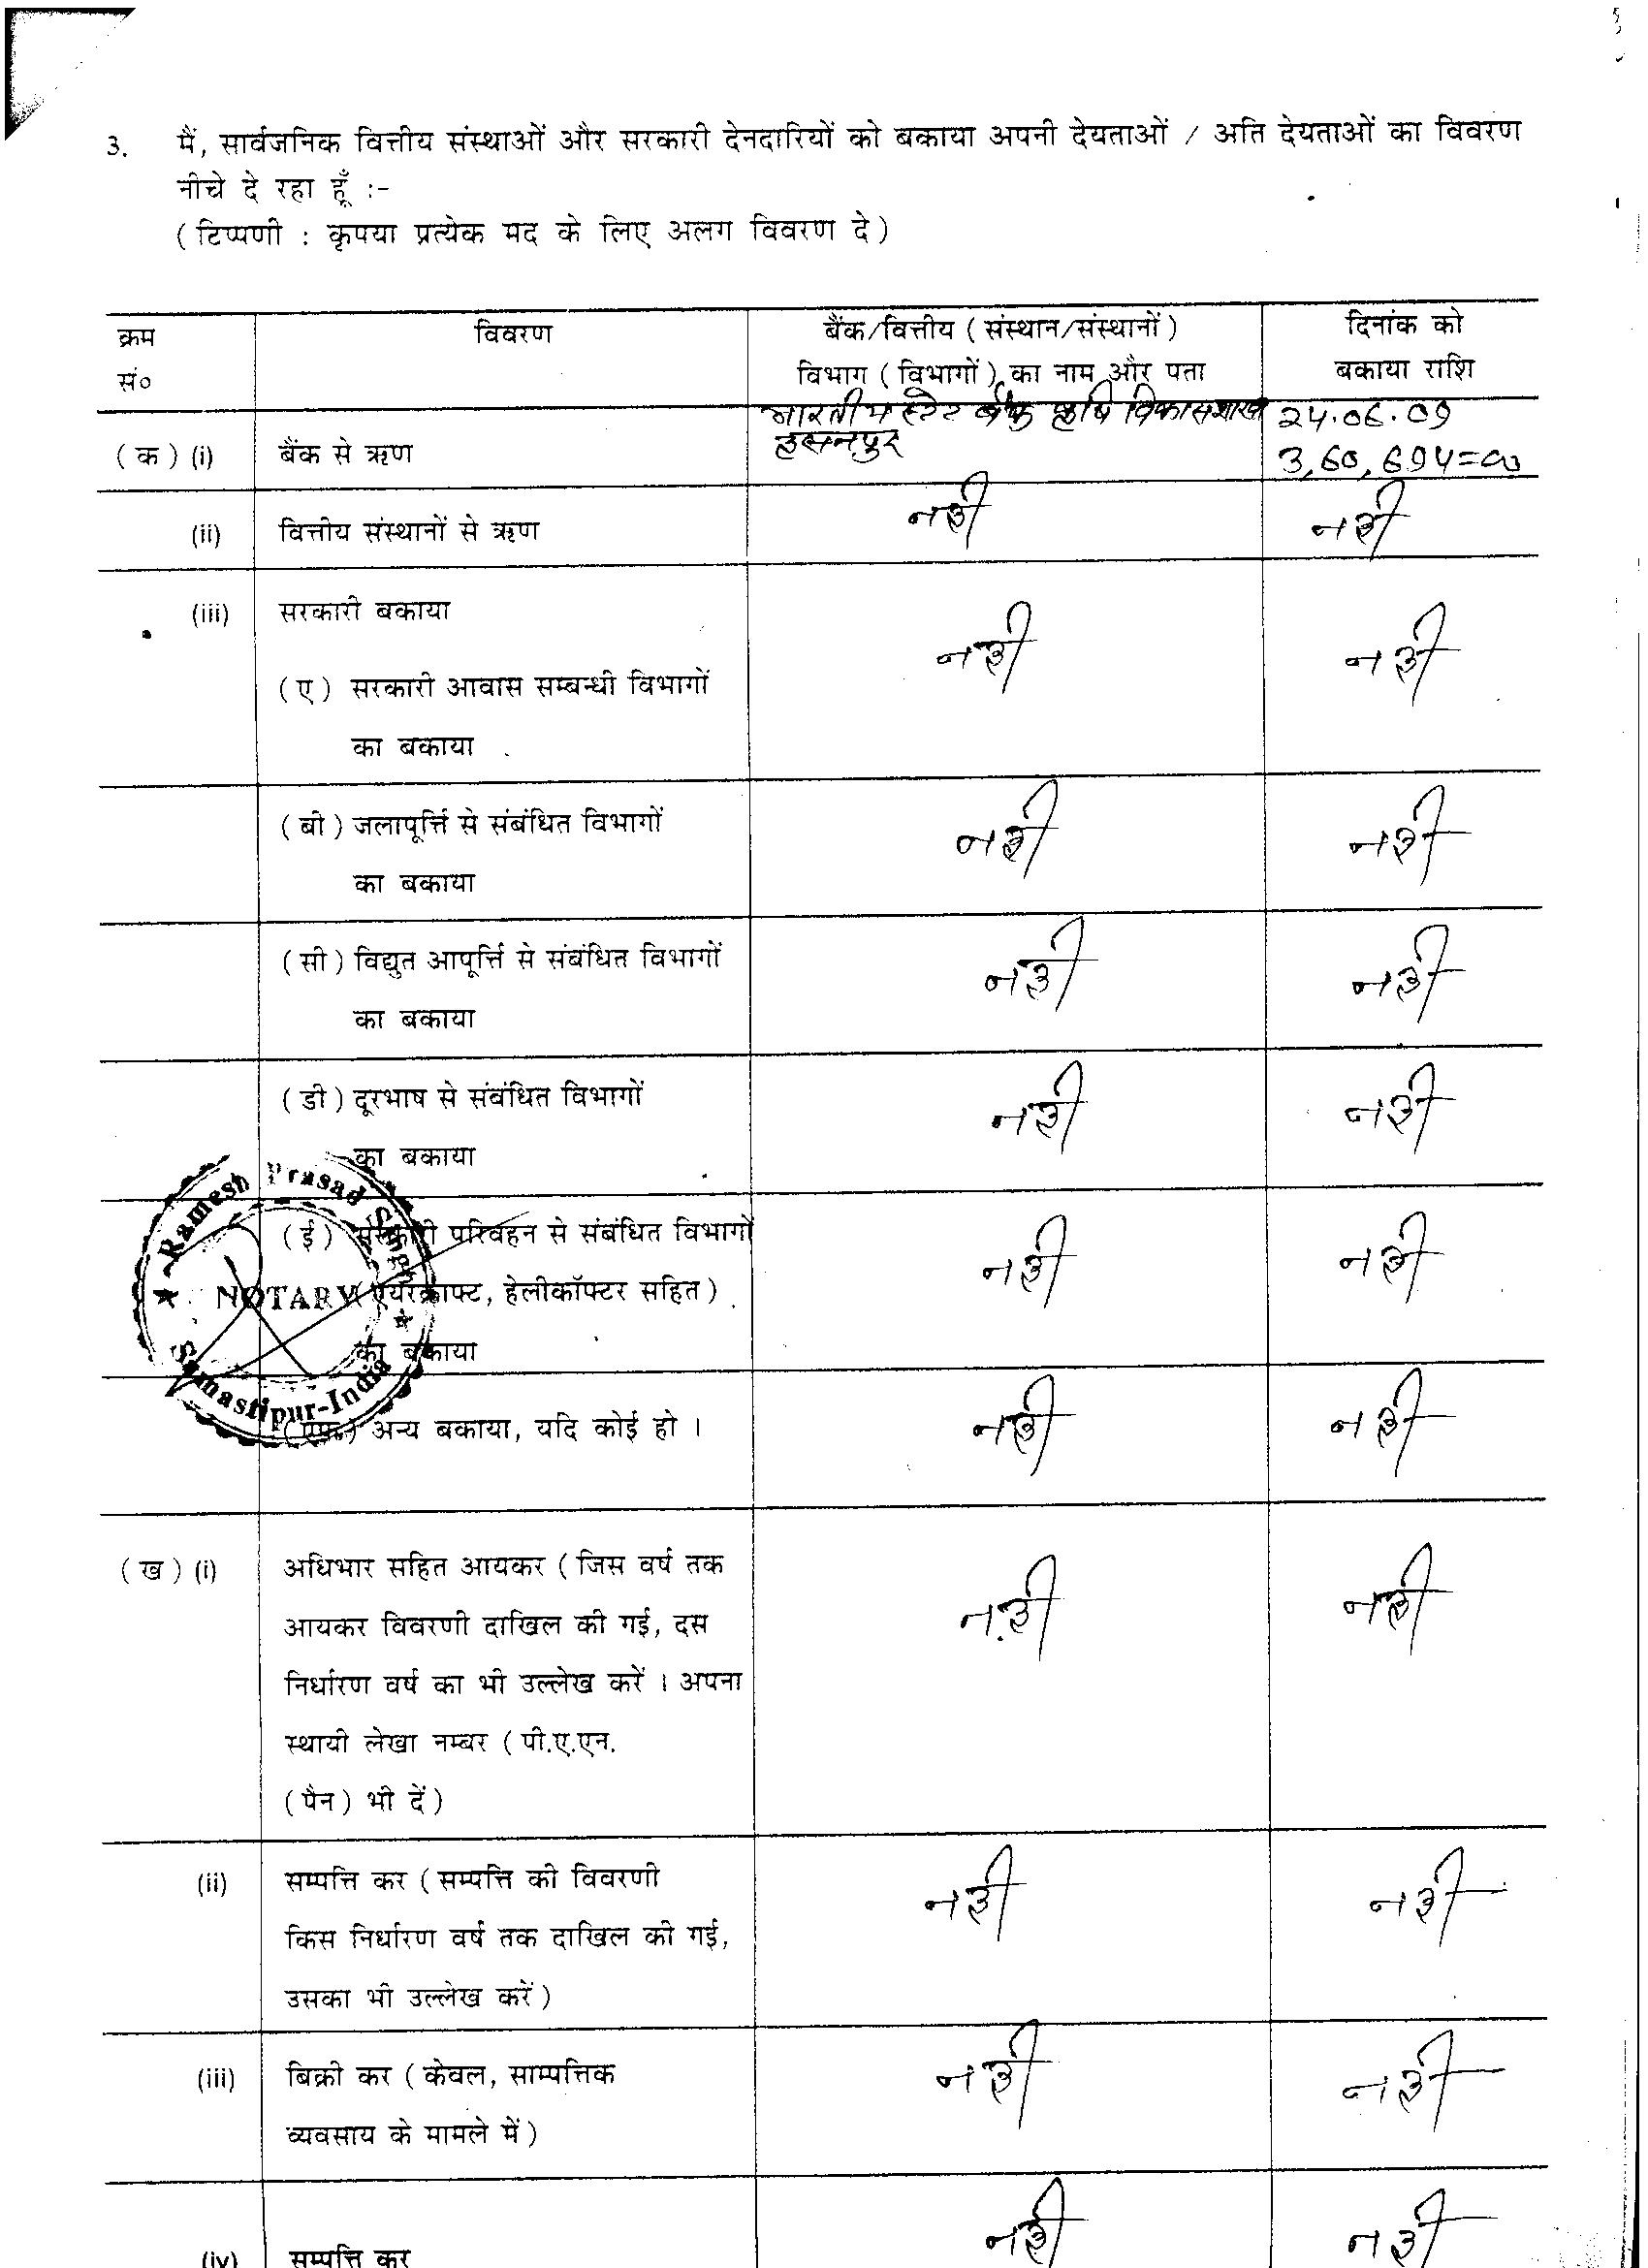 3. मैं, सार्वजनिक वित्तीय संस्थाओं और सरकारी देनदारियों को बकाया अपनी देयताओं / अति देयताओं का विवरण
नीचे दे रहा हूँ :-
( टिप्पणी : कृपया प्रत्येक मद के लिए अलग विवरण दे )
क्रम सं० विवरण बैंक/वित्तीय ( संस्थान/संस्थानों ) दिनांक को
विभाग ( विभागों ) का नाम और पता बकाया राशि
भारतीय स्टेट बैंक कृषि विकास शाखा 24.06.09
( क ) (i) बैंक से ऋण हसनपुर 3,60,694=00
(ii) वित्तीय संस्थानों से ऋण नहीं नहीं
(iii) सरकारी बकाया
( ए ) सरकारी आवास सम्बन्धी विभागों नहीं नहीं
का बकाया
( बी ) जलापूर्त्ति से संबंधित विभागों नहीं नहीं
का बकाया
( सी ) विद्युत आपूर्त्ति से संबंधित विभागों नहीं नहीं
का बकाया
( डी ) दूरभाष से संबंधित विभागों नहीं नहीं
का बकाया
( ई ) सरकारी परिवहन से संबंधित विभागों नहीं नहीं
( एयरक्राफ्ट, हेलीकॉप्टर सहित )
का बकाया
Ramesh Prasad Singh
NOTARY
Samastipur-India
( एफ ) अन्य बकाया, यदि कोई हो । नहीं नहीं
( ख ) (i) अधिभार सहित आयकर ( जिस वर्ष तक नहीं नहीं
आयकर विवरणी दाखिल की गई, दस
निर्धारण वर्ष का भी उल्लेख करें । अपना
स्थायी लेखा नम्बर ( पी.ए.एन.
( पैन ) भी दें )
(ii) सम्पत्ति कर ( सम्पत्ति की विवरणी नहीं नहीं
किस निर्धारण वर्ष तक दाखिल की गई,
उसका भी उल्लेख करें )
(iii) बिक्री कर ( केवल, साम्पत्तिक नहीं नहीं
व्यवसाय के मामले में )
(iv) सम्पत्ति कर नहीं नहीं